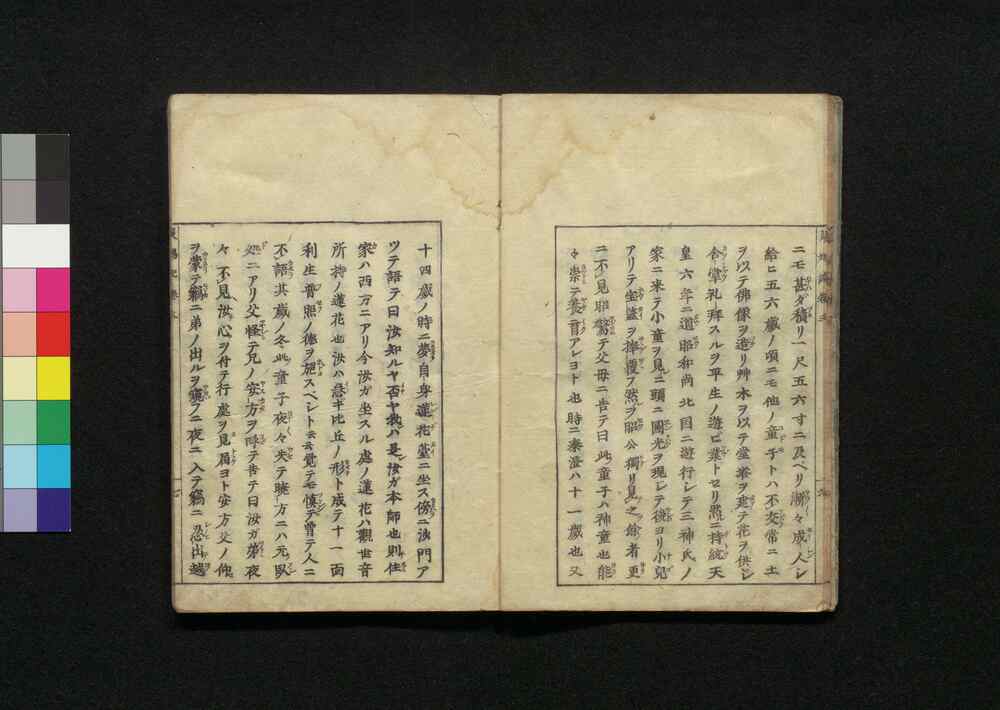 ニモ甚ダ積リ一尺五六寸ニ及ベリ漸々成人シ
給ヒ五六歳ノ頃ニモ他ノ童子トハ不交常ニ土
ヲ以テ佛像ヲ造リ艸木ヲ以テ堂塔ヲ建テ花ヲ供シ
合掌礼拜スルヲ平生ノ遊ビ業トセリ然ニ持統天
皇六年ニ道昭和尚北国ニ遊行シテ三神氏ノ
家ニ来テ小童ヲ見ニ頭ニ圓光ヲ現シテ後ヨリ小兒
アリテ宝蓋ヲ捧覆フ然ヲ昭公獨リ見之餘者更
ニ不見昭驚テ父母ニ告テ曰此童子ハ神童也能
々崇テ養育アレヨト也時ニ泰澄ハ十一歳也又
十四歳ノ時ニ夢自身蓮花臺ニ坐ス傍ニ沙門ア
ツテ語テ曰汝知ルヤ否ヤ我ハ是汝ガ本師也則住
家ハ西方ニアリ今汝ガ坐スル處ノ蓮花ハ觀世音
所持ノ蓮花也汝ハ急ギ比丘ノ形ト成テ十一面
利生普照ノ德ヲ施スベシト云云覺テモ慎テ曽テ人ニ
不語其歳ノ冬此童子夜々失テ暁方ニハ元臥
処ニアリ父怪テ兄ノ安方ヲ呼テ告テ曰汝ガ弟夜
々不見汝心ヲ付テ行處ヲ見届ヨト安方父ノ仰
ヲ蒙テ竊ニ弟ノ出ルヲ窺フニ夜ニ入テ竊ニ忍出越